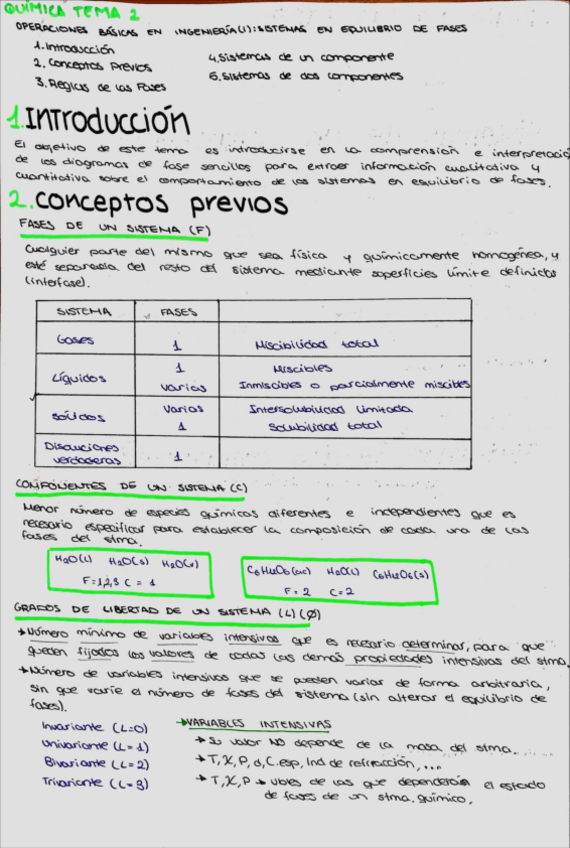 QUÍMICA TEMA 2
OPERACIONES BÁSICAS EN INGENIERÍA(I):SISTEMAS EN EQUILIBRIO DE FASES
1.Introducción
2. Conceptos Previos
3. Reglas de las Fases
4.Sistemas de un componente
5.Sistemas de dos componentes
1.Introducción
El objetivo de este tema es introducirse en la comprensión e interpretació
de los diagramas de fase sencillos para extraer información cualitativa y
cuantitativa sobre el comportamiento de los sistemas en equilibrio de fases.
2.conceptos previos
FASES DE UN SISTEMA (F)
Cualquier parte del mismo que sea física y químicamente homogénea, y
esté separada del resto del sistema mediante superficies límite definidas
(interfase).
SISTEMA FASES
Gases 1 Miscibilidad total
Líquidos 1 Miscibles
varias Inmiscibles o parcialmente miscibles
Sólidos Varias Intersolubilidad limitada
1 Solubilidad total
Disoluciones verdaderas 1
COMPONENTES DE UN SISTEMA (C)
Menor número de especies químicas diferentes e independientes que es
necesario especificar para establecer la composición de cada una de las
fases del stma.
H2O(l) H2O(s) H2O(v)
F=1,2,3 C = 1
C6H12O6(ac) H2O(l) C6H12O6(s)
F = 2 C=2
GRADOS DE LIBERTAD DE UN SISTEMA (L)(Ø)
→Número mínimo de variables intensivas que es necesario determinar, para que
queden fijados los valores de todas las demás propiedades intensivas del stma.
→Número de variables intensivas que se pueden variar de forma arbitraria,
sin que varíe el número de fases del sistema (sin alterar el equilibrio de
fases).
Invariante (L=0)
Univariante (L= 1)
Bivariante (L= 2)
Trivariante (L= 3)
→VARIABLES INTENSIVAS
→ Su valor NO depende de la masa del stma.
→ T, X, P, d, C.esp, Ind de refracción, ...
→ T, X, P → vbles de las que dependerán el estado
de fases de un stma. químico.